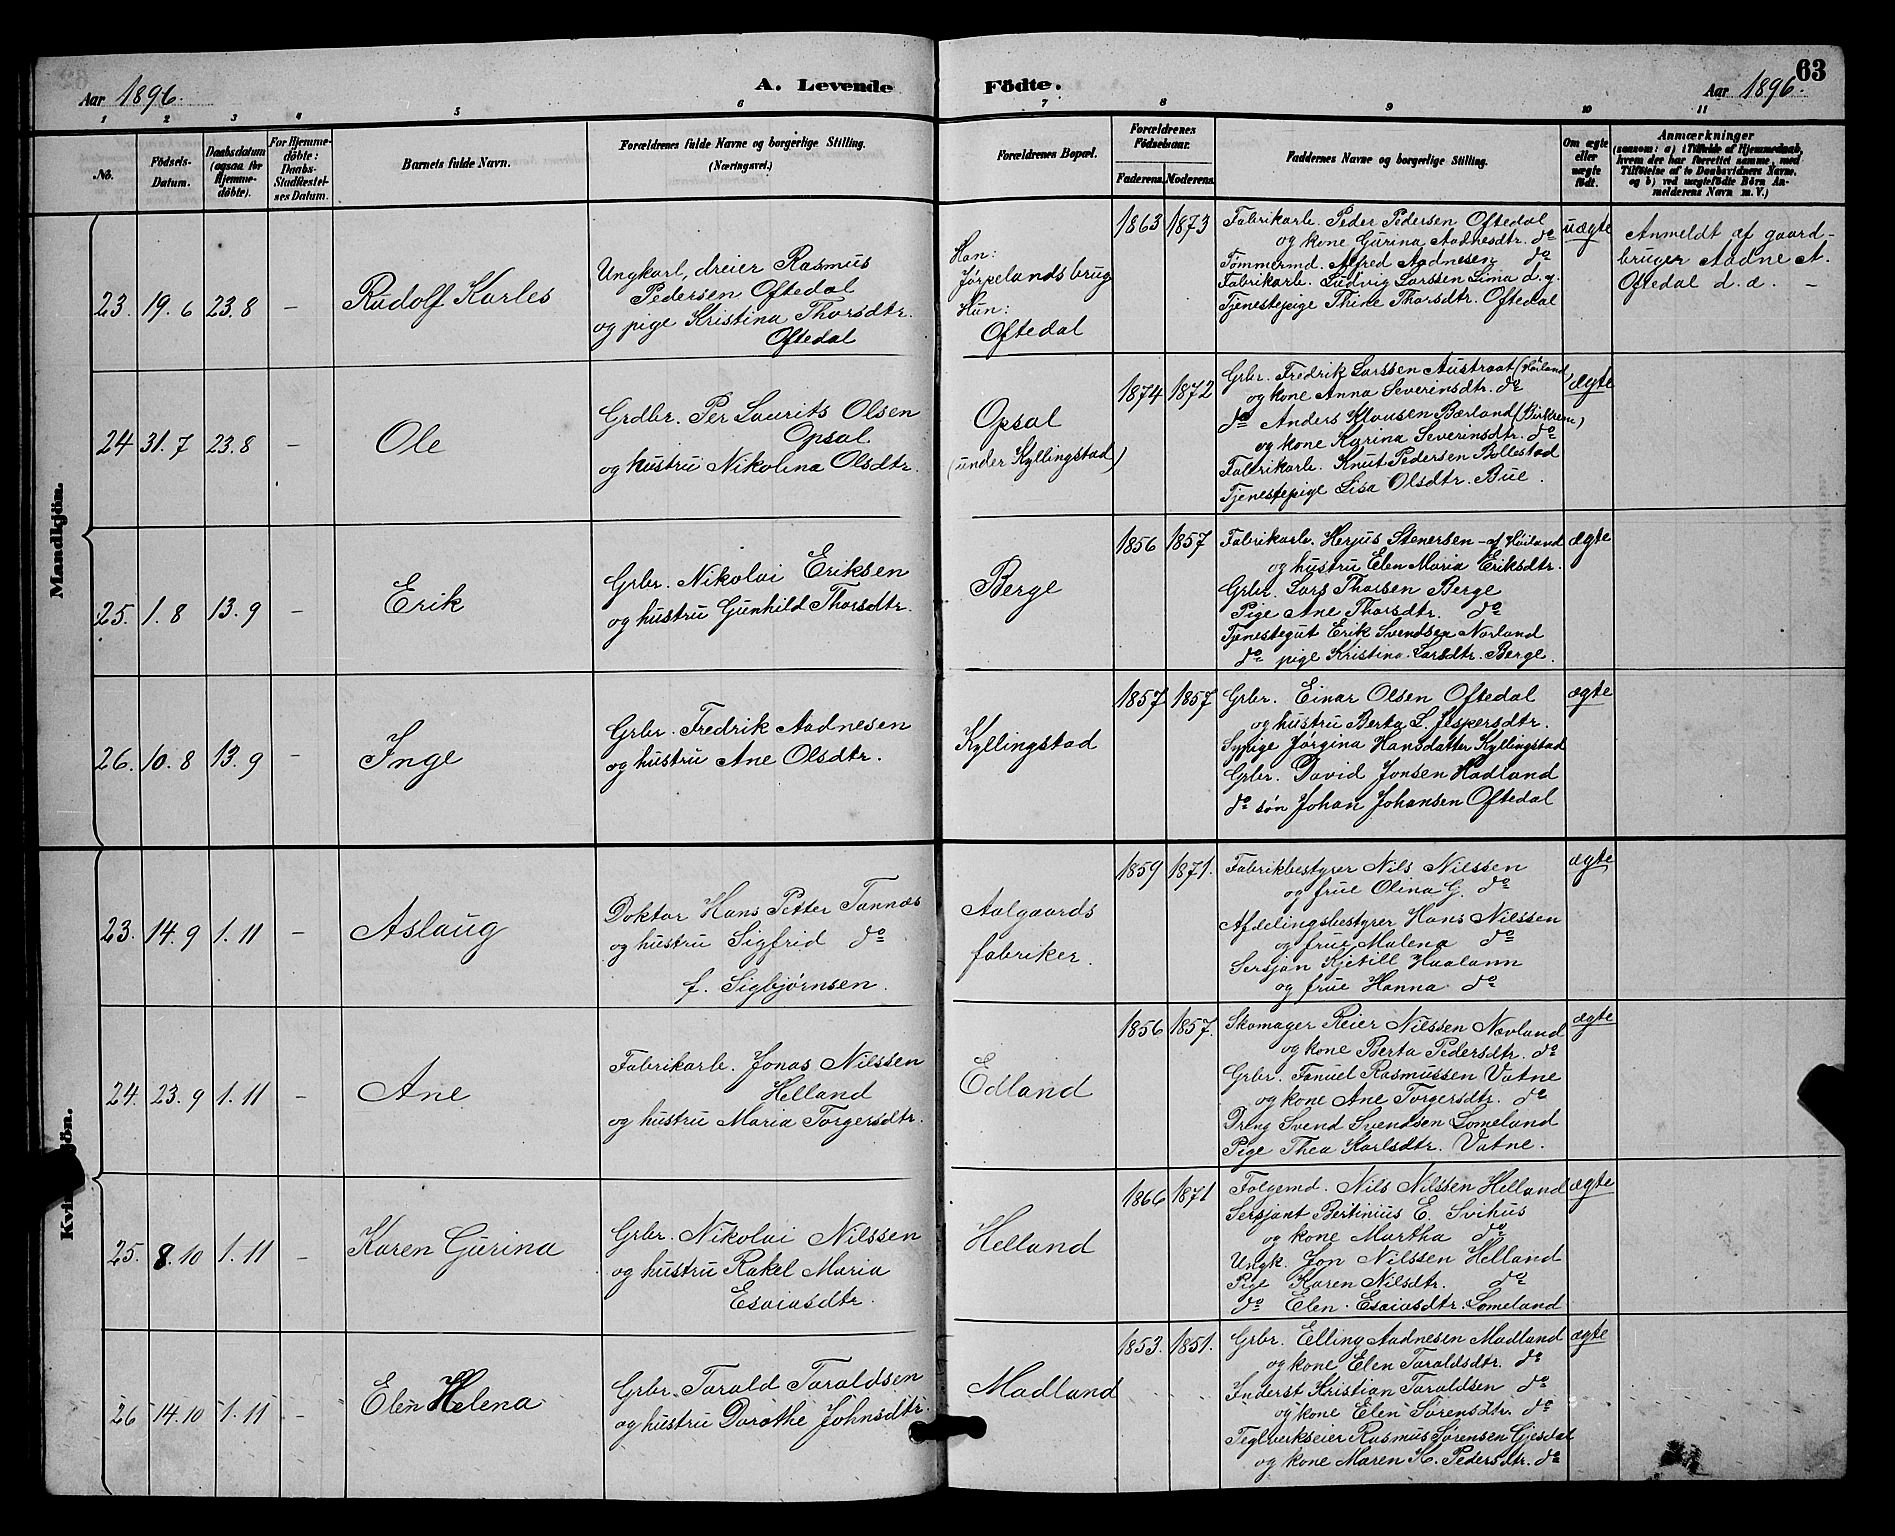 63
Aar 1896.
A. Levende Födte.
Aar 1896.
1 2 3 4 5 6 7 8 9 10 11
No.
Födsels-
Datum.
Daabsdatum
(ogsaa for
Hjemme-
döbte).
For Hjemme-
döbte:
Daabs-
Stadfæstel-
ses Datum.
Barnets fulde Navn.
Forældrenes fulde Navne og borgerlige Stilling.
(Næringsvei.)
Forældrenes Bopæl.
Forældrenes
Födselsaar.
Faderens. Moderens.
Faddernes Navne og borgerlige Stilling.
Om ægte
eller
uægte
födt.
Anmærkninger
(saasom: a) i Tilfælde af Hjemmedaab,
hvem der har forrettet samme, med
Tilföielse af to Daabsvidners Navne,
og b) ved uægtefödte Börn An-
melderens Navn m. V.)
Mandkjön.
23. 19.6 23.8 –
Rudolf Karles
Ungkarl, dreier Rasmus
Pedersen Oftedal
og pige Kristina Thorsdtr.
Oftedal
Han:
Jørpelandsbrug
Hun:
Oftedal
1863 1873
Fabrikarb. Peder Pedersen Oftedal
og kone Gurina Aadnesdtr. do
Tømmermd. Alfred Aadnesen do
Fabrikarb. Ludvig Larssen Lima d.y.
Tjenestepige Thine Thorsdtr. Oftedal
uægte
Anmeldt af gaard-
bruger Aadne A.
Oftedal d.a. –
24 31.7 23.8 –
Ole
Grdbr. Per Laurits Olsen
Opsal
og hustru Nikolina Olsdtr.
Opsal
(under Kyllingstad)
1874 1872
Grbr. Fredrik Larssen Austraat (Høiland)
og kone Anna Severinsdtr. do
do Anders Klausen Bærland (Birkrem)
og kone Karina Severinsdtr. do
Fabrikarb. Knut Pedersen Bollestad
Tjenestepige Lisa Olsdtr. Bue.
ægte
25. 1.8 13.9 –
Erik
Grbr. Nikolai Eriksen
og hustru Gunhild Thorsdtr.
Berge
1856 1857
Fabrikarb. Herjus Stenersen – af Høiland
og hustru Elen Maria Eriksdtr.
Grbr. Lars Thorsen Berge
Pige Ane Thorsdtr. do
Tjenestegut Erik Svendsen Norland
do pige Kristina Larsdtr. Berge.
ægte
26. 10.8 13.9 –
Inge
Grbr. Fredrik Aadnesen
og hustru Ane Olsdtr.
Kyllingstad
1857 1857
Grbr. Einar Olsen Oftedal
og hustru Berta L. Jespersdtr.
Sypige Jørgina Hansdatter Kyllingstad
Grbr. David Jonsen Hadland
do søn Johan Johansen Oftedal
ægte
23. 14.9 1.11 –
Aslaug
Doktor Hans Petter Tannæs
og hustru Sigfrid do
f. Sigbjørnsen.
Aalgaards
fabriker.
1859 1871.
Fabrikbestyrer Nils Nilssen
og frue Olina G. do
Afdelingsbestyrer Hans Nilssen
og frue Malena do
Sersjan Kjetill Haalann
og frue Hanna do
ægte
24. 23.9 1.11 –
Ane
Fabrikarb. Jonas Nilssen
Helland
og hustru Maria Torgersdtr.
Edland
1856 1857.
Skomager Reier Nilssen Nævland
og kone Berta Pedersdtr. do
Grbr. Tanuel Rasmussen Vatne
og kone Ane Torgersdtr. do
Dreng Svend Svendsen Lomeland
Pige Thea Karlsdtr. Vatne.
ægte
25. 8.10 1.11 –
Karen Gurina
Grbr. Nikolai Nilssen
og hustru Rakel Maria
Esaiasdtr.
Helland
1866 1871
Folgemd. Nils Nilssen Helland
Sersjant Bertinius E. Svihus
og kone Martha do
Ungk. Jon Nilssen Helland
Pige Karen Nilsdtr. do
do Elen Esaiasdtr. Lomeland
ægte
26 14.10 1.11 –
Elen Helena
Grbr. Tarald Taraldsen
og hustru Dorothe Johnsdtr.
Madland
1853. 1851.
Grbr. Elling Aadnesen Madland
og kone Elen Taraldsdtr. do
Inderst Kristian Taraldsen do
og kone Elen Sørensdtr. do
Teglverkseier Rasmus Sørensen Gjesdal
og kone Maren K. Pedersdtr. do
ægte